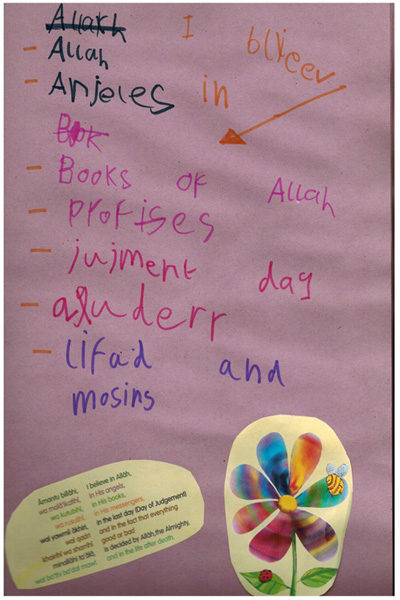 Allakh I blyeev
- Allah
- Anjeles in
Book
- Books of Allah
- profises
- jujment day
- aquderr
- lifad and
mosins
Āmantu billāhi, I believe in Allāh,
wa malā'ikatihi, in His angels,
wa kutubihi, in His books,
wa rusulihi, in His messengers,
wal yawmil ākhiri, in the last day (Day of Judgement)
wal qadri and in the fact that everything
khayrihi wa sharrihi good or bad
minallāhi ta'ālā, is decided by Allāh, the Almighty,
wal ba'thi ba'dal mawt. and in the life after death.